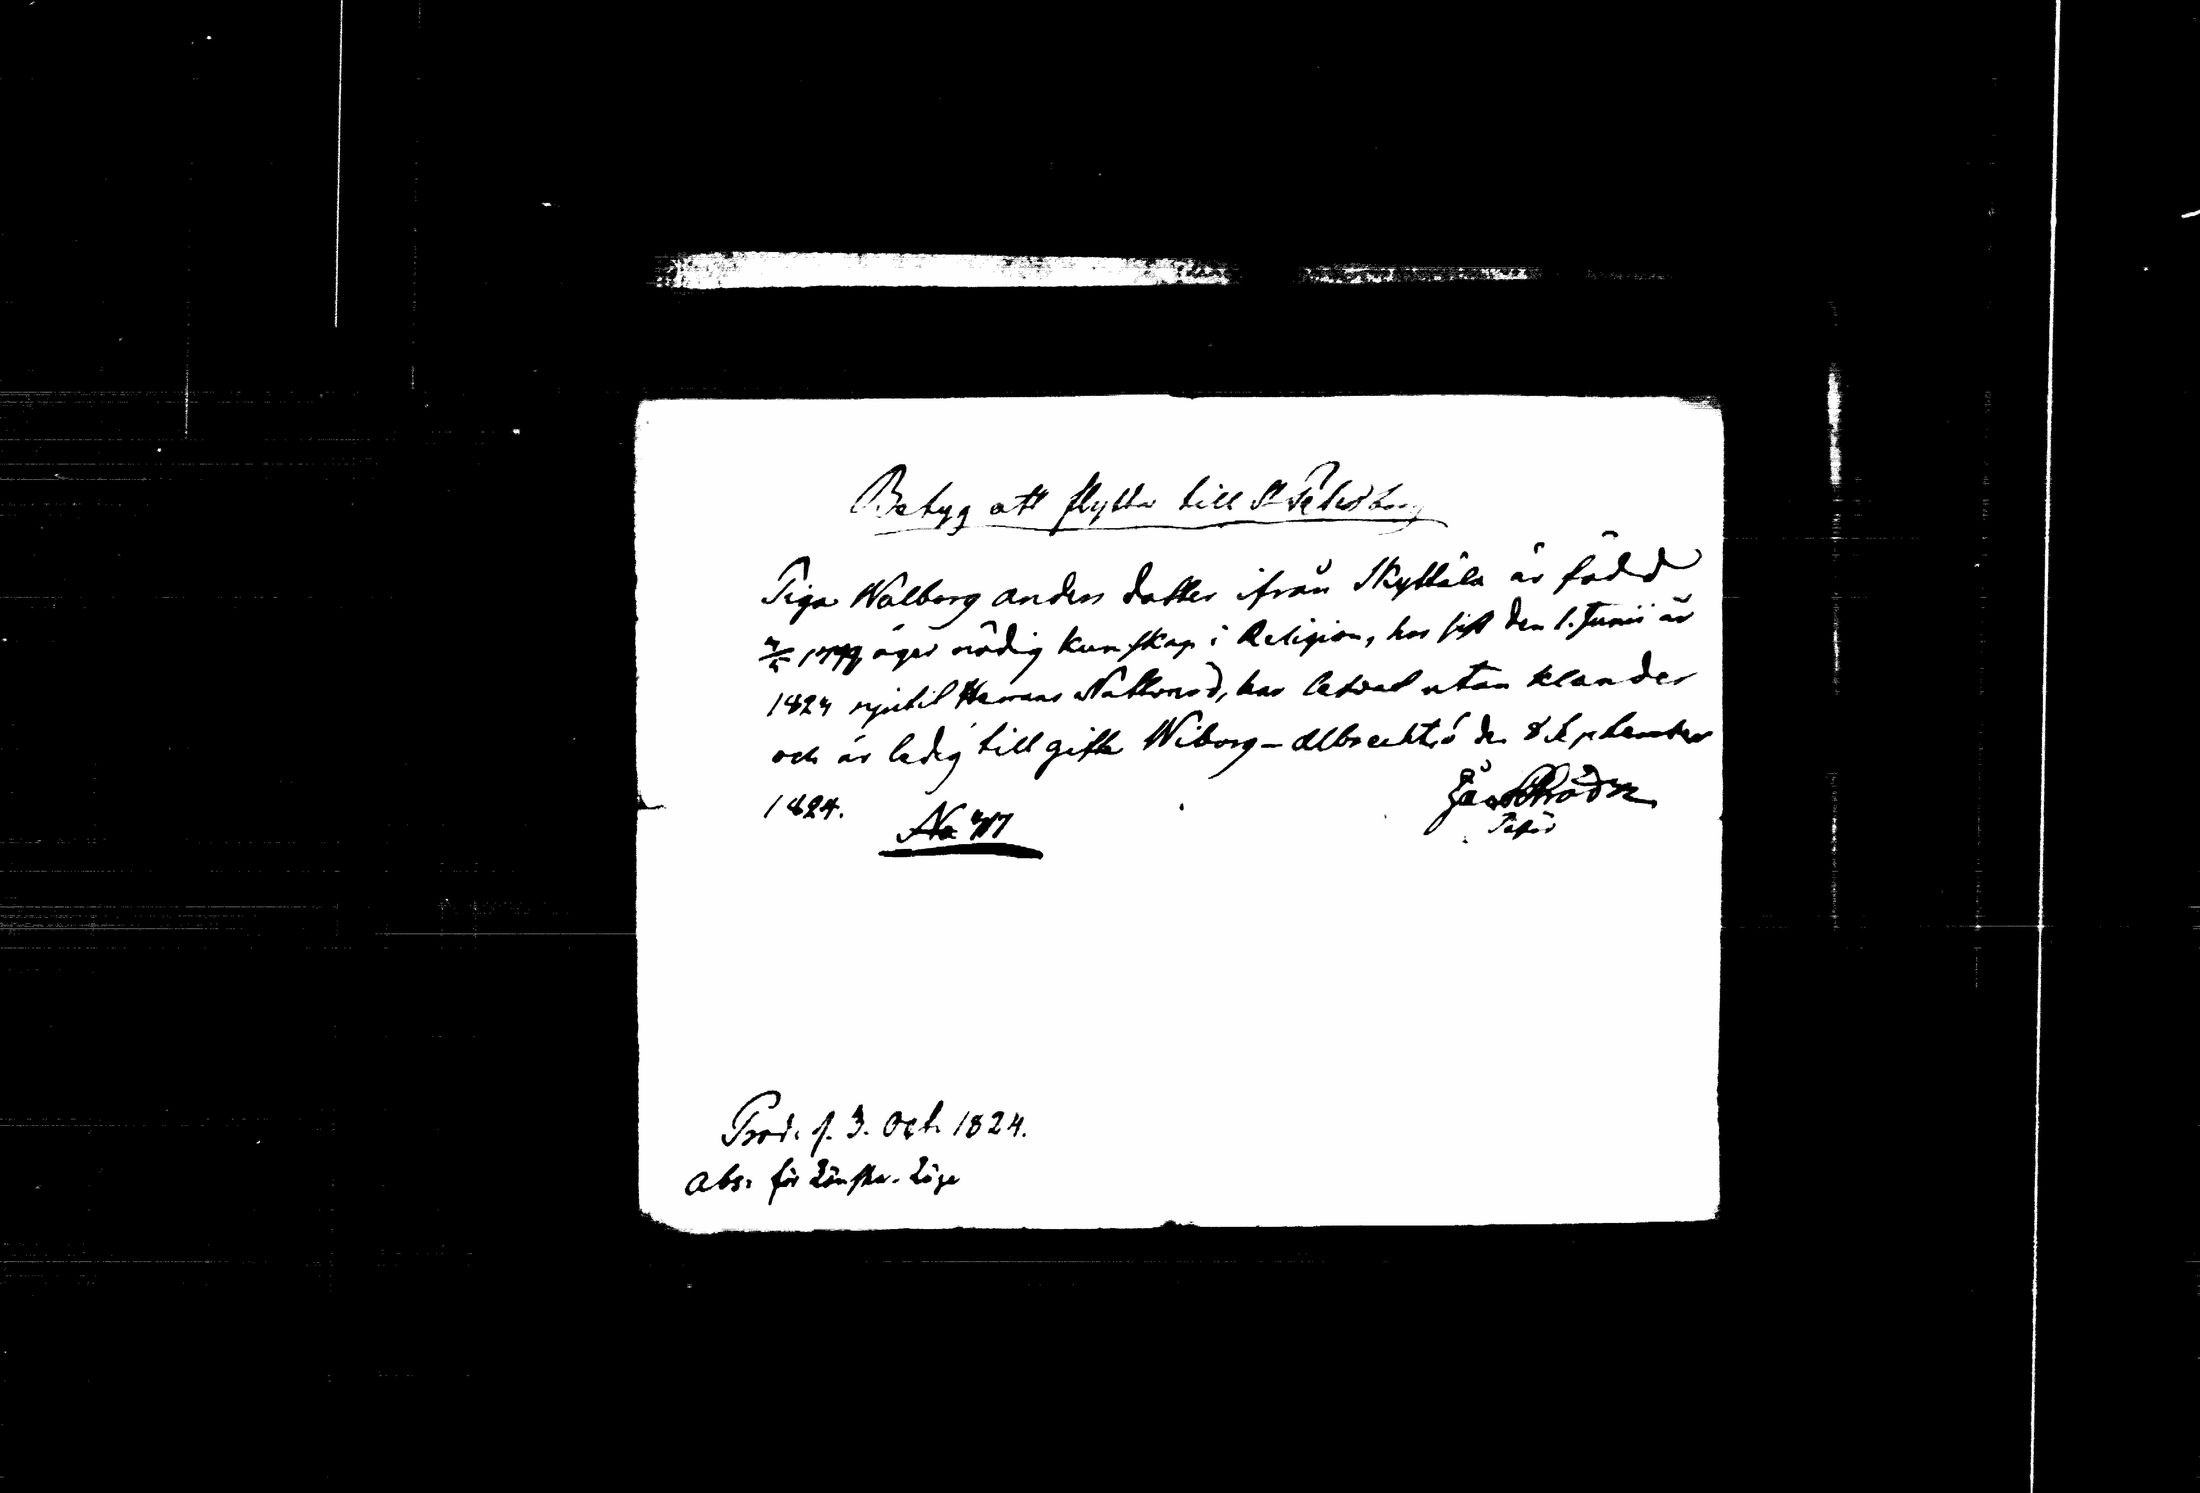 Betyg att flytta till St Petersburg
Piga Walborg anders dotter ifrån Skyttälä är född
äger nödig kunskap i Religion, har sist den 1. Junii år
1824 njutit Herrans Nattvard, har lefvat utan klander
och är ledig till gifte Wiborg - den 8 September
1824.
No
Prod. d. 3. Oct. 1824.
abs. för